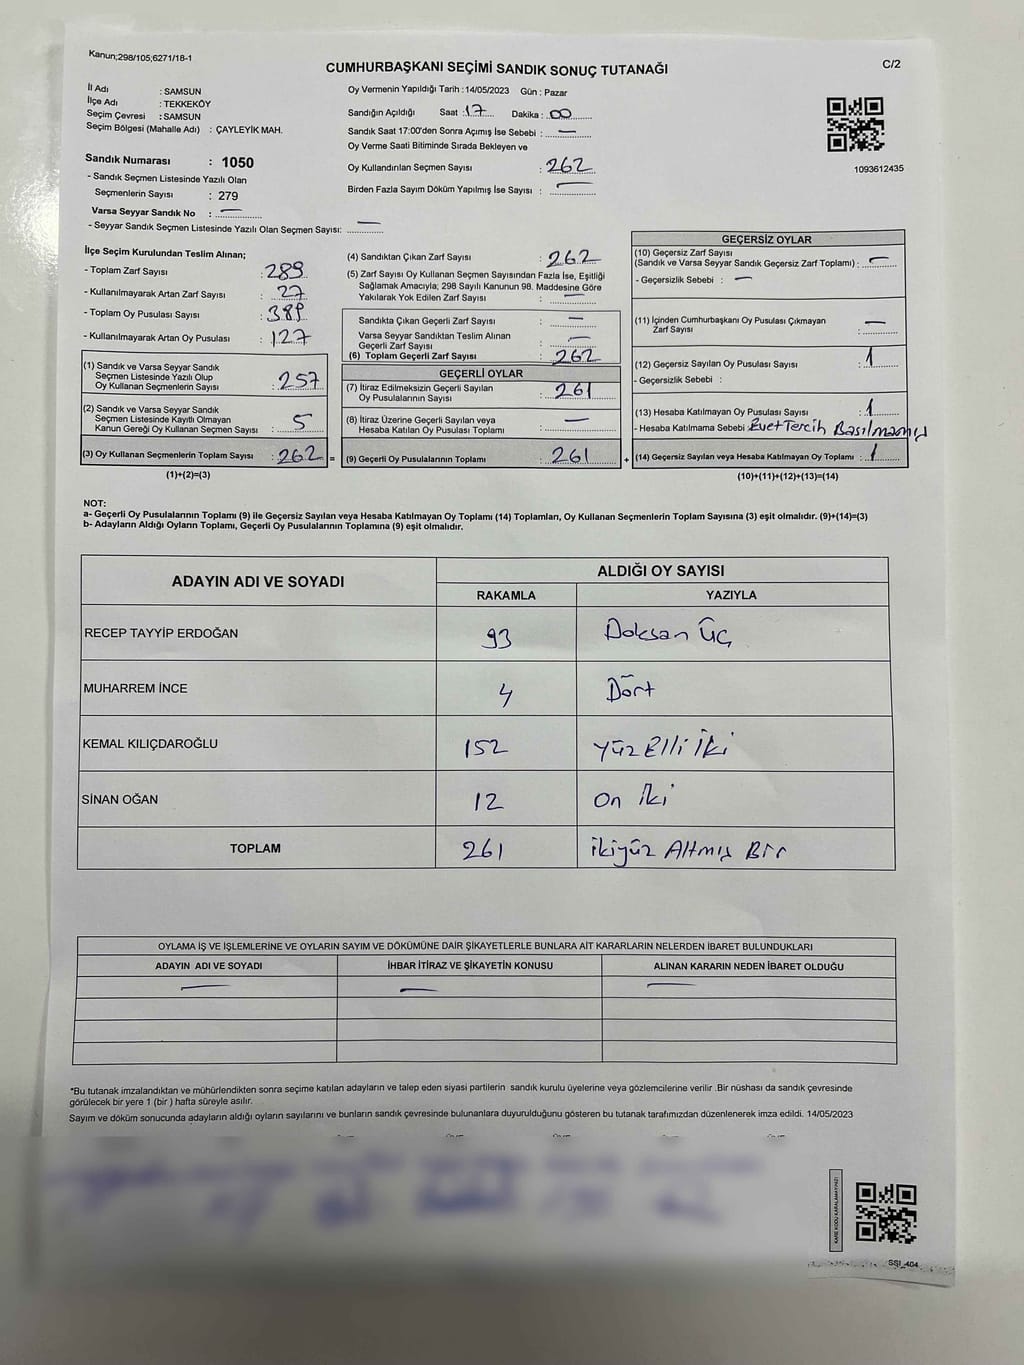 Kanun;298/105;6271/18-1
C/2
CUMHURBAŞKANI SEÇİMİ SANDIK SONUÇ TUTANAĞI
İl Adı : SAMSUN
İlçe Adı : TEKKEKÖY
Seçim Çevresi : SAMSUN
Seçim Bölgesi (Mahalle Adı) : ÇAYLEYİK MAH.
Sandık Numarası : 1050
- Sandık Seçmen Listesinde Yazılı Olan
Seçmenlerin Sayısı : 279
Varsa Seyyar Sandık No : —
- Seyyar Sandık Seçmen Listesinde Yazılı Olan Seçmen Sayısı: —
Oy Vermenin Yapıldığı Tarih : 14/05/2023 Gün : Pazar
Sandığın Açıldığı Saat : 17 Dakika : 00
Sandık Saat 17:00'den Sonra Açımış İse Sebebi : —
Oy Verme Saati Bitiminde Sırada Bekleyen ve
Oy Kullandırılan Seçmen Sayısı : 262
Birden Fazla Sayım Döküm Yapılmış İse Sayısı : —
1093612435
İlçe Seçim Kurulundan Teslim Alınan;
- Toplam Zarf Sayısı : 289
- Kullanılmayarak Artan Zarf Sayısı : 27
- Toplam Oy Pusulası Sayısı : 389
- Kullanılmayarak Artan Oy Pusulası : 127
(1) Sandık ve Varsa Seyyar Sandık
Seçmen Listesinde Yazılı Olup
Oy Kullanan Seçmenlerin Sayısı : 257
(2) Sandık ve Varsa Seyyar Sandık
Seçmen Listesinde Kayıtlı Olmayan
Kanun Gereği Oy Kullanan Seçmen Sayısı : 5
(3) Oy Kullanan Seçmenlerin Toplam Sayısı : 262 =
(1)+(2)=(3)
(4) Sandıktan Çıkan Zarf Sayısı : 262
(5) Zarf Sayısı Oy Kullanan Seçmen Sayısından Fazla İse, Eşitliği
Sağlamak Amacıyla; 298 Sayılı Kanunun 98. Maddesine Göre
Yakılarak Yok Edilen Zarf Sayısı : —
Sandıkta Çıkan Geçerli Zarf Sayısı : —
Varsa Seyyar Sandıktan Teslim Alınan
Geçerli Zarf Sayısı : —
(6) Toplam Geçerli Zarf Sayısı : 262
GEÇERLİ OYLAR
(7) İtiraz Edilmeksizin Geçerli Sayılan
Oy Pusulalarının Sayısı : 261
(8) İtiraz Üzerine Geçerli Sayılan veya
Hesaba Katılan Oy Pusulası Toplamı : —
(9) Geçerli Oy Pusulalarının Toplamı : 261 +
GEÇERSİZ OYLAR
(10) Geçersiz Zarf Sayısı
(Sandık ve Varsa Seyyar Sandık Geçersiz Zarf Toplamı) : —
- Geçersizlik Sebebi : —
(11) İçinden Cumhurbaşkanı Oy Pusulası Çıkmayan
Zarf Sayısı : —
(12) Geçersiz Sayılan Oy Pusulası Sayısı : 1
- Geçersizlik Sebebi :
(13) Hesaba Katılmayan Oy Pusulası Sayısı : 1
- Hesaba Katılmama Sebebi : Evet Tercih Basılmamış
(14) Geçersiz Sayılan veya Hesaba Katılmayan Oy Toplamı : 1
(10)+(11)+(12)+(13)=(14)
NOT:
a- Geçerli Oy Pusulalarının Toplamı (9) ile Geçersiz Sayılan veya Hesaba Katılmayan Oy Toplamı (14) Toplamları, Oy Kullanan Seçmenlerin Toplam Sayısına (3) eşit olmalıdır. (9)+(14)=(3)
b- Adayların Aldığı Oyların Toplamı, Geçerli Oy Pusulalarının Toplamına (9) eşit olmalıdır.
ADAYIN ADI VE SOYADI ALDIĞI OY SAYISI
RAKAMLA YAZIYLA
RECEP TAYYİP ERDOĞAN 93 Doksan Üç
MUHARREM İNCE 4 Dört
KEMAL KILIÇDAROĞLU 152 Yüz Elli İki
SİNAN OĞAN 12 On İki
TOPLAM 261 İkiyüz Altmış Bir
OYLAMA İŞ VE İŞLEMLERİNE VE OYLARIN SAYIM VE DÖKÜMÜNE DAİR ŞİKAYETLERLE BUNLARA AİT KARARLARIN NELERDEN İBARET BULUNDUKLARI
ADAYIN ADI VE SOYADI İHBAR İTİRAZ VE ŞİKAYETİN KONUSU ALINAN KARARIN NEDEN İBARET OLDUĞU
— — —
*Bu tutanak imzalandıktan ve mühürlendikten sonra seçime katılan adayların ve talep eden siyasi partilerin sandık kurulu üyelerine veya gözlemcilerine verilir .Bir nüshası da sandık çevresinde
görülecek bir yere 1 (bir ) hafta süreyle asılır.
Sayım ve döküm sonucunda adayların aldığı oyların sayılarını ve bunların sandık çevresinde bulunanlara duyurulduğunu gösteren bu tutanak tarafımızdan düzenlenerek imza edildi. 14/05/2023
KARE KODU KARALAMAYINIZ!
SSİ_404